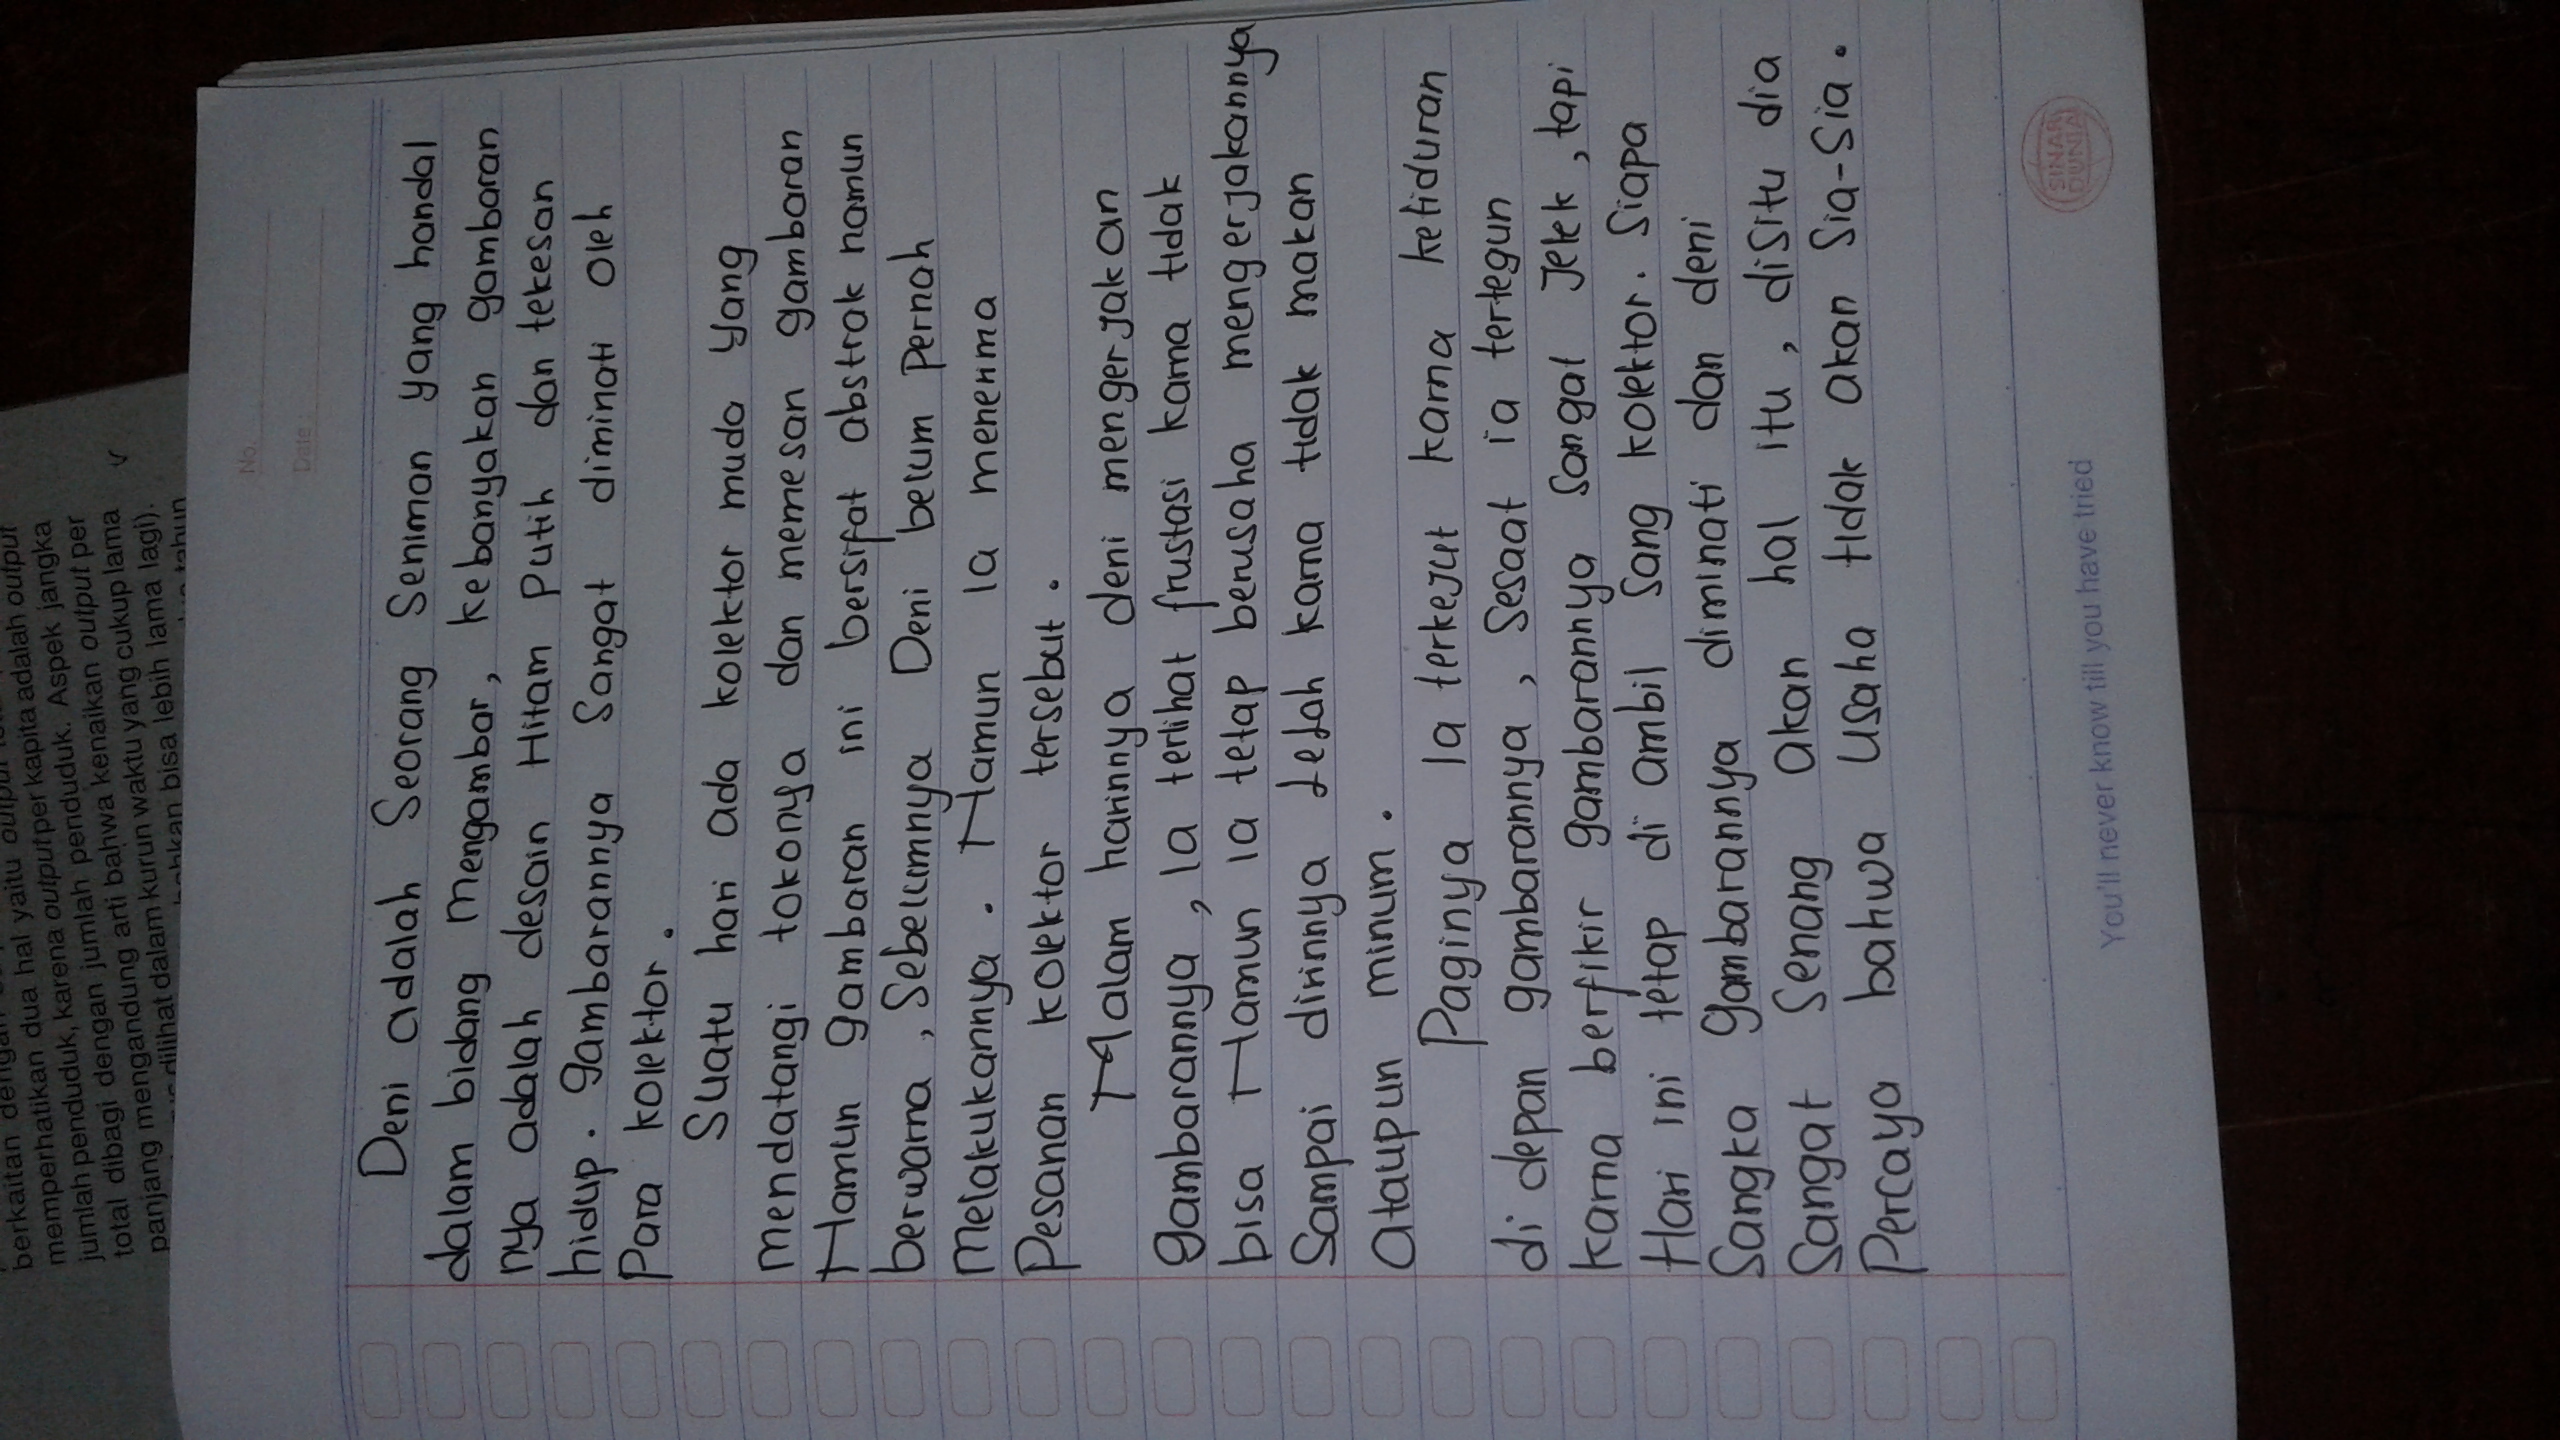 berkaitan dengan
memperhatikan dua hal yaitu output
jumlah penduduk, karena output perkapita adalah output
total dibagi dengan jumlah penduduk. Aspek jangka
panjang mengandung arti bahwa kenaikan output per
dilihat dalam kurun waktu yang cukup lama
bahkan bisa lebih lama lagi).
tahun
No.
Date:
Deni adalah Seorang Seniman yang handal
dalam bidang Mengambar, kebanyakan gambaran
nya adalah desain Hitam Putih dan tekesan
hidup. gambarannya Sangat diminati Oleh
Para kolektor.
Suatu hari ada kolektor muda yang
Mendatangi tokonya dan memesan gambaran
Namun gambaran ini bersifat abstrak namun
berwarna, Sebelumnya Deni belum Pernah
Melakukannya. Namun Ia menerima
Pesanan kolektor tersebut.
Malam harinnya deni mengerjakan
gambarannya, Ia terlihat frustasi karna tidak
bisa Namun Ia tetap berusaha mengerjakannya
Sampai dirinnya Lelah karna tidak makan
Ataupun minum.
Paginya Ia terkejut karna ketiduran
di depan gambarannya, Sesaat ia tertegun
karna berfikir gambarannya Sangat Jelek, tapi
Hari ini tetap di ambil Sang kolektor. Siapa
Sangka gambarannya diminati dan deni
Sangat Senang akan hal itu, disitu dia
Percaya bahwa Usaha tidak akan Sia-Sia.
SINAR DUNIA
You'll never know till you have tried